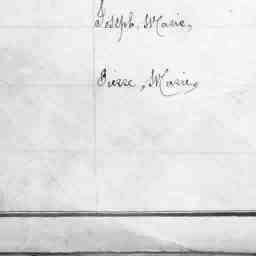 Joseph Marie,
Pierre, Marie,